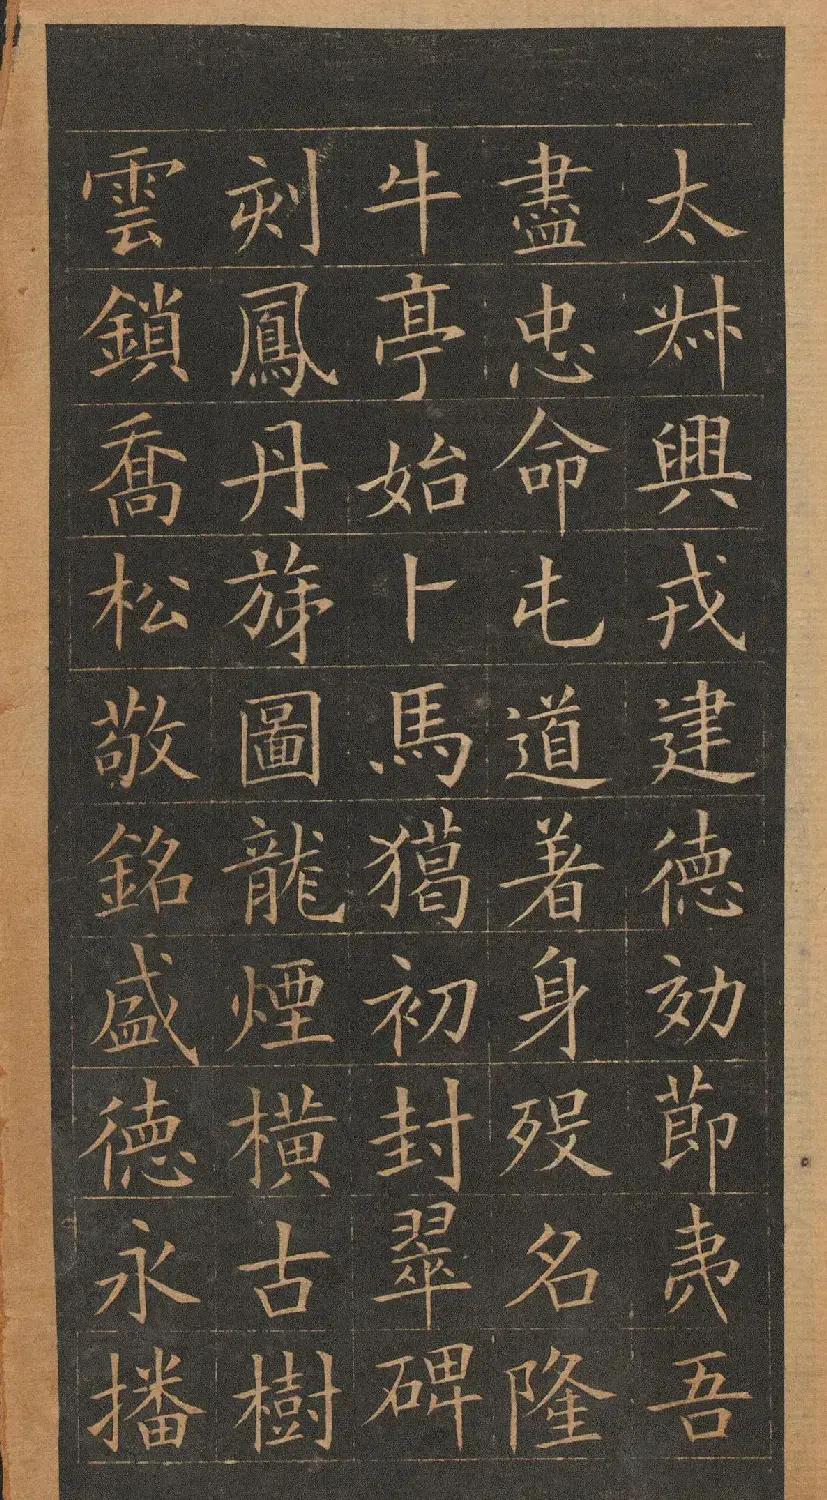 太叔興戎建德効節夷吾
盡忠命屯道着身殁名隆
牛亭始卜馬獦初封翠碑
刻鳳丹旐圖龍煙橫古樹
雲鎖喬松敬銘盛德永播